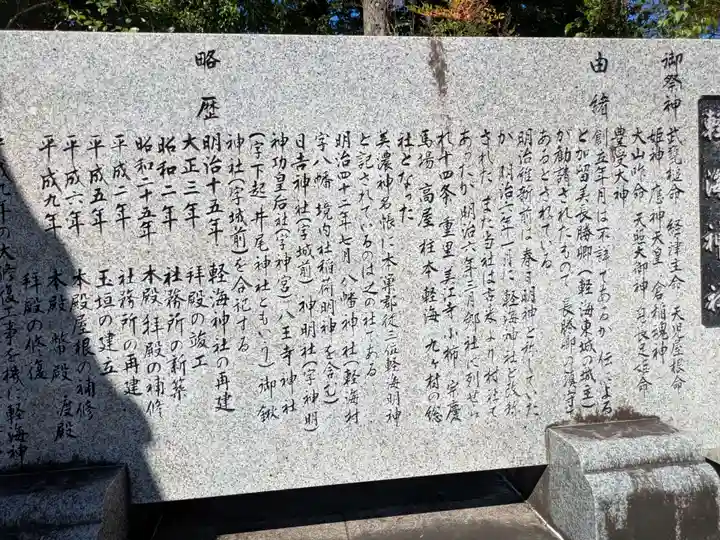 軽海神社
御祭神 武甕槌命 経津主命 天児屋根命
姫神 應神天皇 倉稲魂神
大山咋命 天照大御神 息長足姫命
豊受大神
由緒 創立年月は不詳であるが 伝によると
加留美長勝卿(軽海東城の城主)
が勧請されたもので 長勝卿の護守で
あるとされている
明治維新前は 春日明神と称していた
が 明治二年一月に 軽海神社と改称
された また当社は古来より村社で
あったが 明治六年三月郷社に列せら
れ 十四条 重里 美江寺 小柳 宗慶
馬場 高屋 柱本 軽海 九ヶ村の総
社となった
美濃神名帳に 本巣郡従三位軽海明神
と記されているのは之の社である
明治四十二年七月 八幡神社(軽海村
字八幡 境内社稲荷明神を含む)
日吉神社(字城前) 神明社(字神明)
神功皇后社(字神宮) 八王寺神社
(字下起 井尾神社ともいう) 御鍬
神社(字城前)を合祀する
略歴
明治十五年 軽海神社の再建
大正三年 拝殿の竣工
昭和二年 社務所の新築
昭和二十五年 本殿 拝殿の補修
平成二年 社務所の再建
平成五年 玉垣の建立
平成六年 本殿屋根の補修
平成九年 本殿 幣殿 渡殿
拝殿の修復
平成九年の大修復工事を機に軽海神